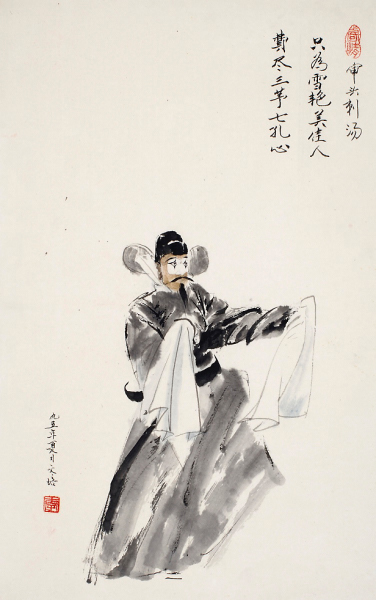 审头刺汤
只為雪艳美佳人
費尽三 七孔心
九五年夏月文培